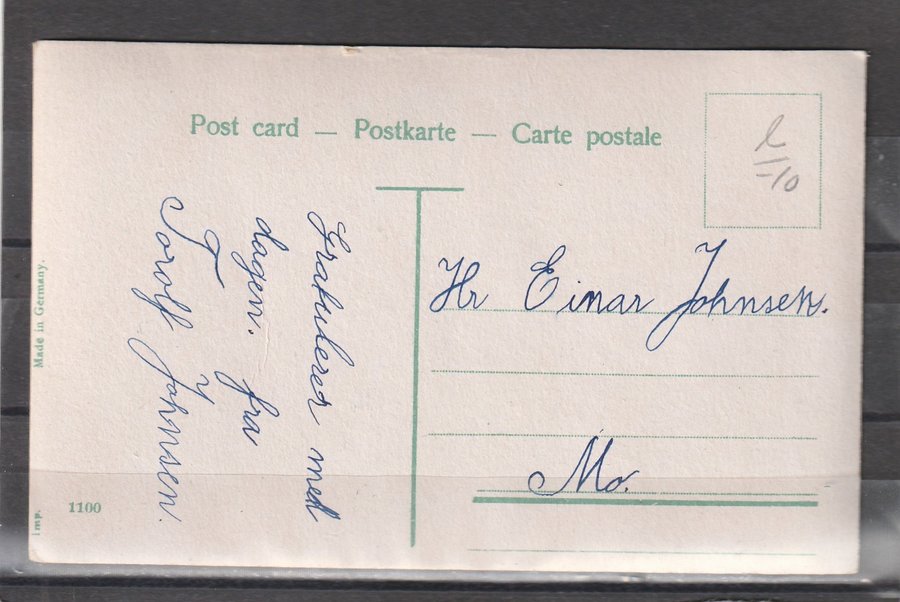 Post card — Postkarte — Carte postale
Grakulerer med
dagen. fra
Torolf Johnsen.
Hr Einar Johnsen.
Mo.
Made in Germany.
imp.
1100